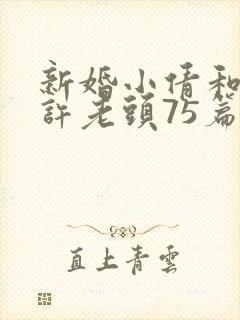 新婚小倩和
許老頭75篇
直上青雲